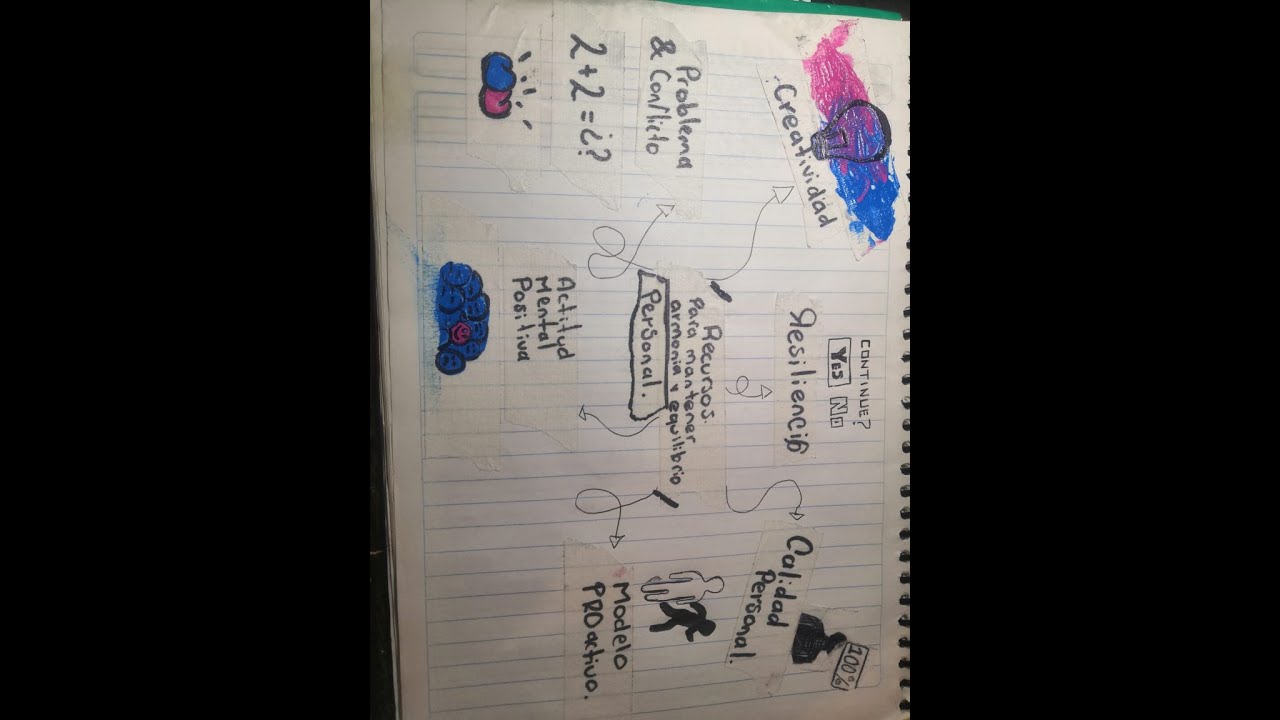 Creatividad
CONTINUE?
YES NO
Resiliencia
100%
Calidad
Personal.
Problema
& Conflicto
2+2=¿?
Recursos.
Para mantener
armonia y equilibrio
Personal.
Actitud
Mental
Positiva
Modelo
PROactivo.